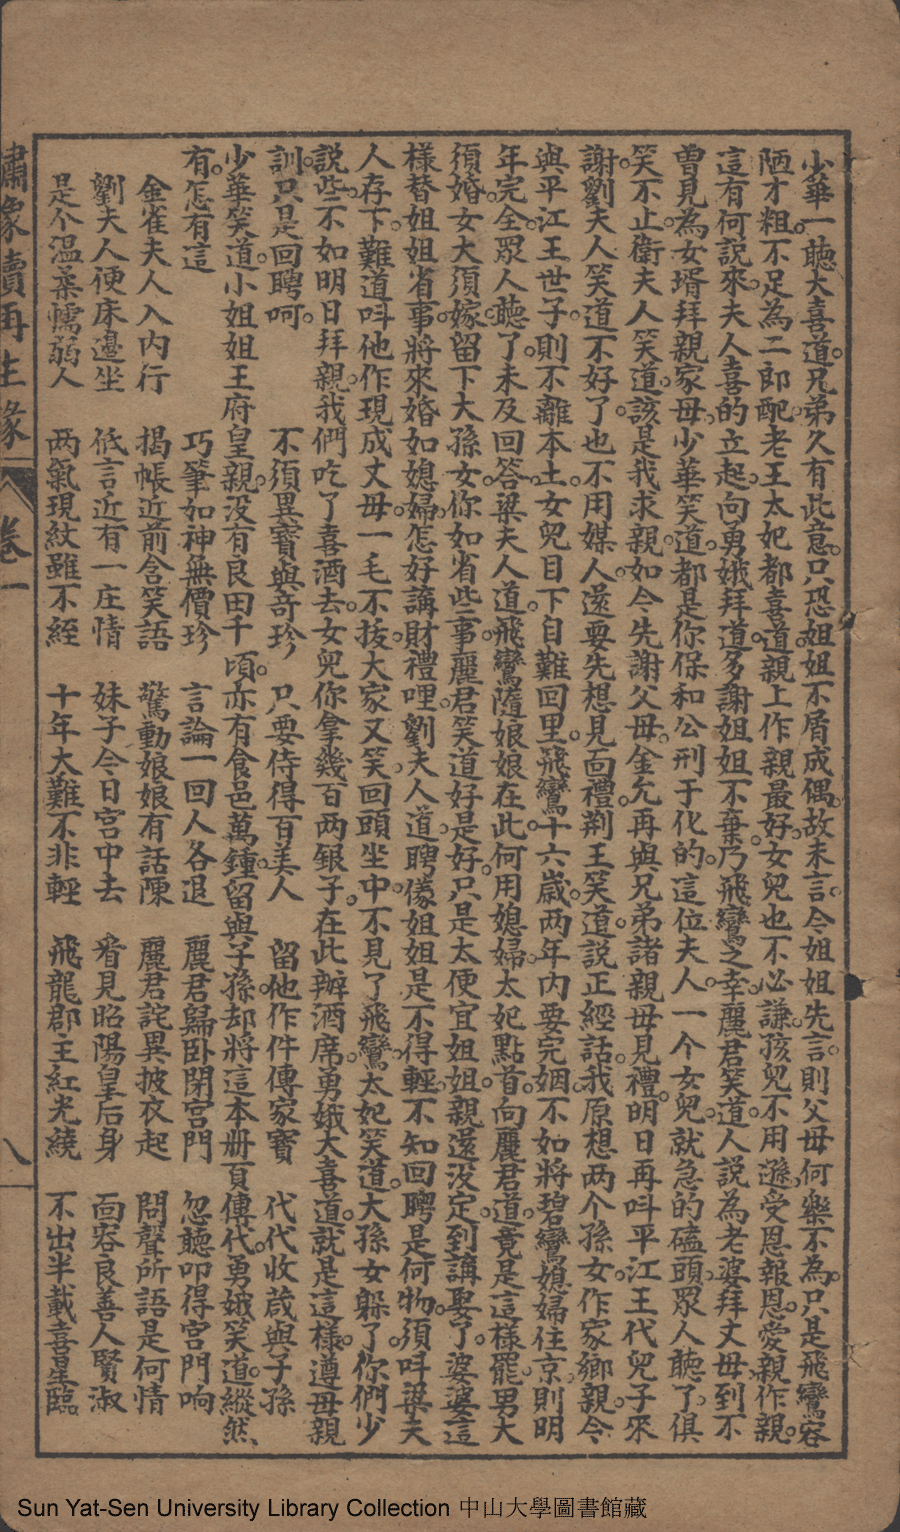 少華一聽大喜道。兄弟久有此意。只恐姐姐不屑成偶。故未言。今姐姐先言。則父母何樂不為。只是飛鸞容
陋才粗。不足為二郎配。老王太妃都喜道。親上作親最好。女兒也不必謙。孩兒不用遜。受恩報恩。愛親作親。
這有何說來。夫人喜的立起。向勇娥拜道。多謝姐姐不棄。乃飛鸞之幸。麗君笑道。人說為老婆拜丈母。到不
曾見為女壻拜親家母。少華笑道。都是你保和公刑于化的。這位夫人。一个女兒。就急的磕頭。眾人聽了。俱
笑不止。衛夫人笑道。該是我求親。如今先謝父母。金允再與兄弟諸親母見禮。明日再呌平江王代兒子來
謝。劉夫人笑道。不好了。也不用媒人。還要先想見面禮。荆王笑道。說正經話。我原想两个孫女。作家鄉親。今
與平江王世子。則不離本土。女兒目下自難回里。飛鸞十六歲。两年內要完姻。不如將碧鸞媳婦住京。則明
年完全。眾人聽了。未及回答。梁夫人道。飛鸞隨娘娘在此。何用媳婦。太妃點首。向麗君道。竟是這樣罷。男大
須婚。女大須嫁。留下大孫女。你如省些事。麗君笑道。好是好。只是太便宜姐姐。親還没定。到講娶了。婆婆這
樣替姐姐省事。將來婚如媳婦。怎好講財禮哩。劉夫人道。聘儀姐姐是不得輕。不知回聘是何物。須呌梁夫
人存下。難道呌他作現成丈母。一毛不拔。大家又笑。回頭坐中。不見了飛鸞。太妃笑道。大孫女躲了。你們少
說些。不如明日拜親。我們吃了喜酒去。女兒你拿幾百两銀子。在此辦酒席。勇娥大喜道。就是這樣。遵母親
訓。只是回聘呵。 不須異寶與奇珍 只要侍得百美人 留他作件傳家寶 代代收蔵與子孫
少華笑道。小姐姐王府皇親。没有良田千頃。亦有食邑萬鍾。留與子孫。却將這本册頁傳代。勇娥笑道。縱然
有。怎有這 巧筆如神無價珍 言論一回人各退 麗君歸卧閉宮門 忽聽叩得宮門响
金雀夫人入內行 揭帳近前含笑語 驚動娘娘有話陳 麗君詫異披衣起 問聲所語是何情
劉夫人便床邊坐 低言近有一庄情 妹子今日宮中去 看見昭陽皇后身 面容良善人賢淑
是个温柔懦弱人 两氣現紋雖不經 十年大難不非輕 飛龍郡主紅光繞 不出半載喜星臨
繡像續再生緣 卷一 八
Sun Yat-Sen University Library Collection 中山大學圖書館藏